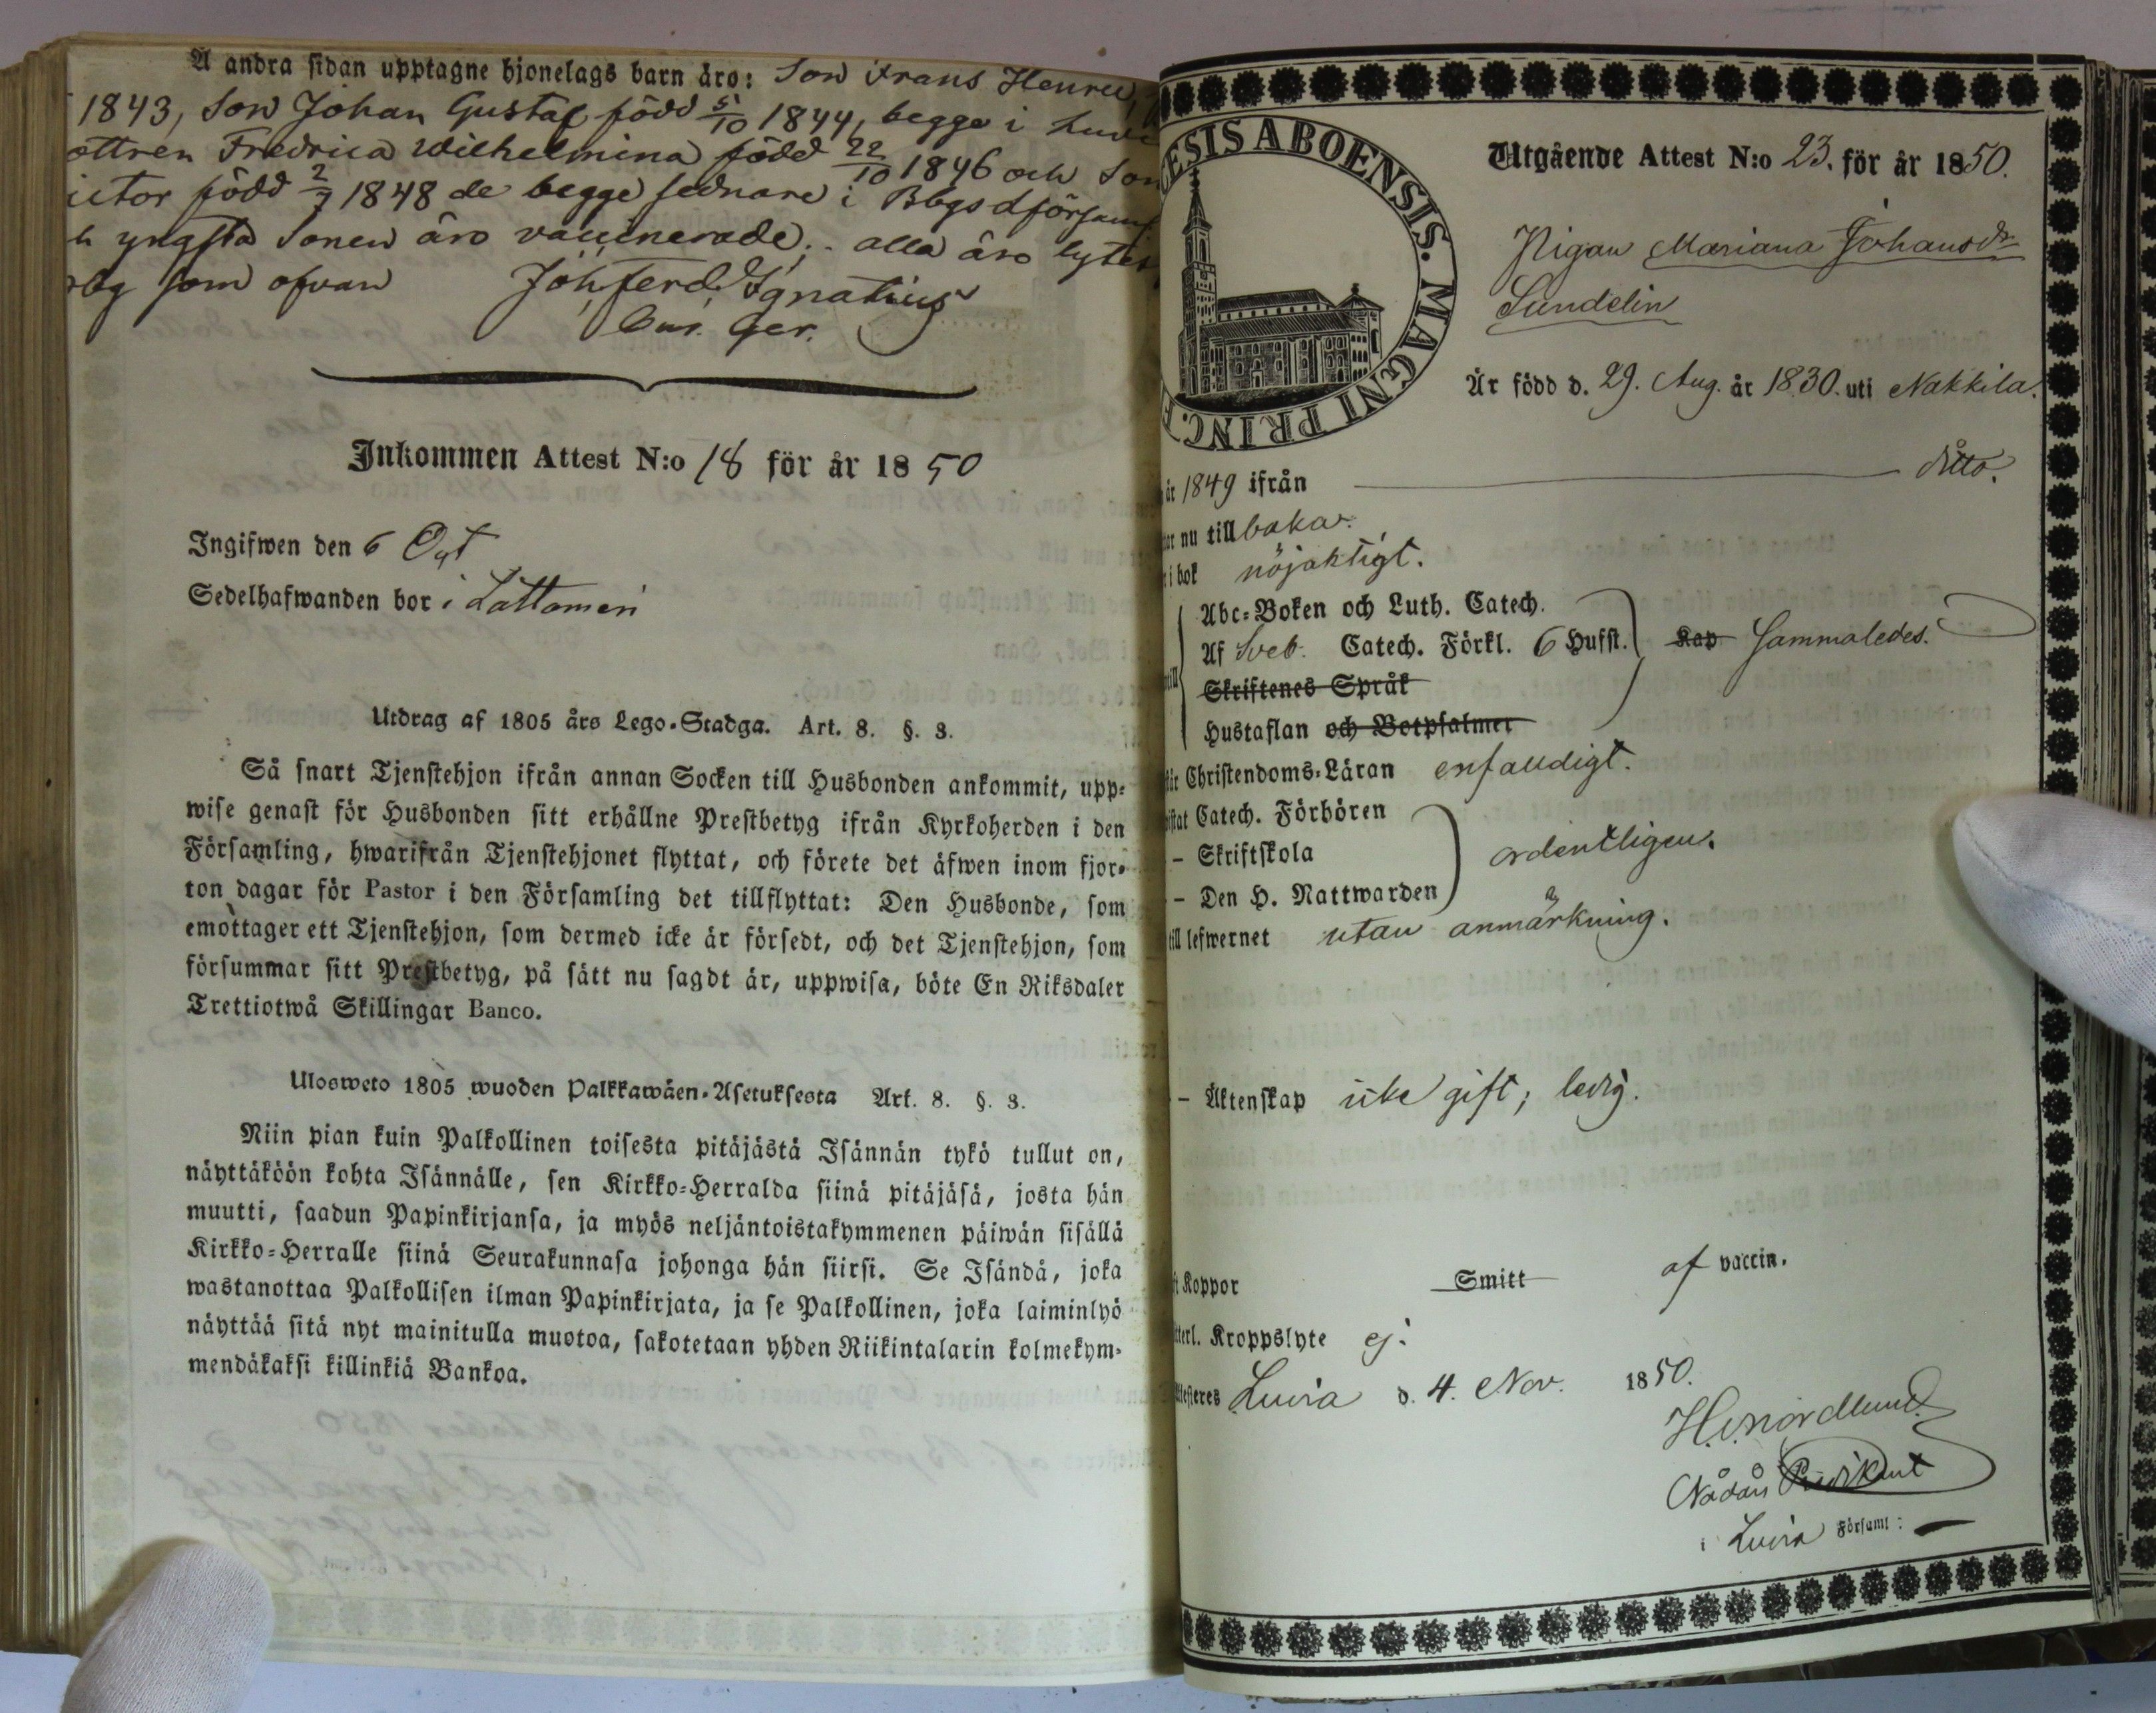 Å andra sidan upptagne hjonelags barn äro: Son Frans Henric,
1843, Son Johan Gustaf född 5/10 1844, begge i Luvi
ottren Fredrica Wilhelmina född 22/10 1846 och Son
ictor född 2/7 1848 de begge sednare i Bbgs dförsaml
h yngsta Sonen äro vaccinerade; alla äro lytes
rbg som ofvan Joh Ferd Ignatius
Inkommen Attest N:o 18 för år 1850
Ingifwen den 6 Oct
Sedelhafwanden bor i Lattomeri
Utdrag af 1805 års Lego-Stadga. Art. 8. §. 3.
Så snart Tjenstehjon ifrån annan Socken till Husbonden ankommit, upp-
wise genast för Husbonden sitt erhållne Prestbetyg ifrån Kyrkoherden i den
Församling, hwarifrån Tjenstehjonet flyttat, och förete det äfwen inom fjor-
ton dagar för Pastor i den Församling det tillflyttat: Den Husbonde, som
emottager ett Tjenstehjon, som dermed icke är försedt, och det Tjenstehjon, som
försummar sitt Prestbetyg, på sätt nu sagdt är, uppwisa, böte En Riksdaler
Trettiotwå Skillingar Banco.
Ulosweto 1805 wuoden Palkkawäen-Asetuksesta Art. 8. §. 3.
Niin pian kuin Palkollinen toisesta pitäjästä Isännän tykö tullut on,
näyttäköön kohta Isännälle, sen Kirkko-Herralda siinä pitäjäsä, josta hän
muutti, saadun Papinkirjansa, ja myös neljäntoistakymmenen päiwän sisällä
Kirkko-Herralle siinä Seurakunnasa johonga hän siirsi. Se Isändä, joka
wastanottaa Palkollisen ilman Papinkirjata, ja se Palkollinen, joka laiminlyö
näyttää sitä nyt mainitulla muotoa, sakotetaan yhden Riikintalarin kolmekym-
mendäkaksi killinkiä Bankoa.
ESIS ABOENSIS. MAGNI PRINC. F
Utgående Attest N:o 23. för år 1850.
Pigan Mariana Johansdr
Sundelin
Är född d. 29. Aug. år 1830. uti Nakkila.
år 1849 ifrån ditto.
ar nu till baka.
i bok nöjaktigt.
Abc-Boken och Luth. Catech.
Af Sveb. Catech. Förkl. 6 Hufst. Kap Sammaledes.
Skriftenes Språk
Hustaflan och Botpsalmer
tår Christendoms-Läran enfaldigt.
istat Catech. Förhören
- Skriftskola ordentligen.
- Den H. Nattwarden
till lefwernet utan anmärkning.
- Äktenskap icke gift; ledig.
t Koppor Smitt af vaccin.
tterl. Kroppslyte ej.
Attesteres Luvia d. 4. Nov. 1850.
H. Nordlund
Nådårs Predikant
i Luvia Församl: